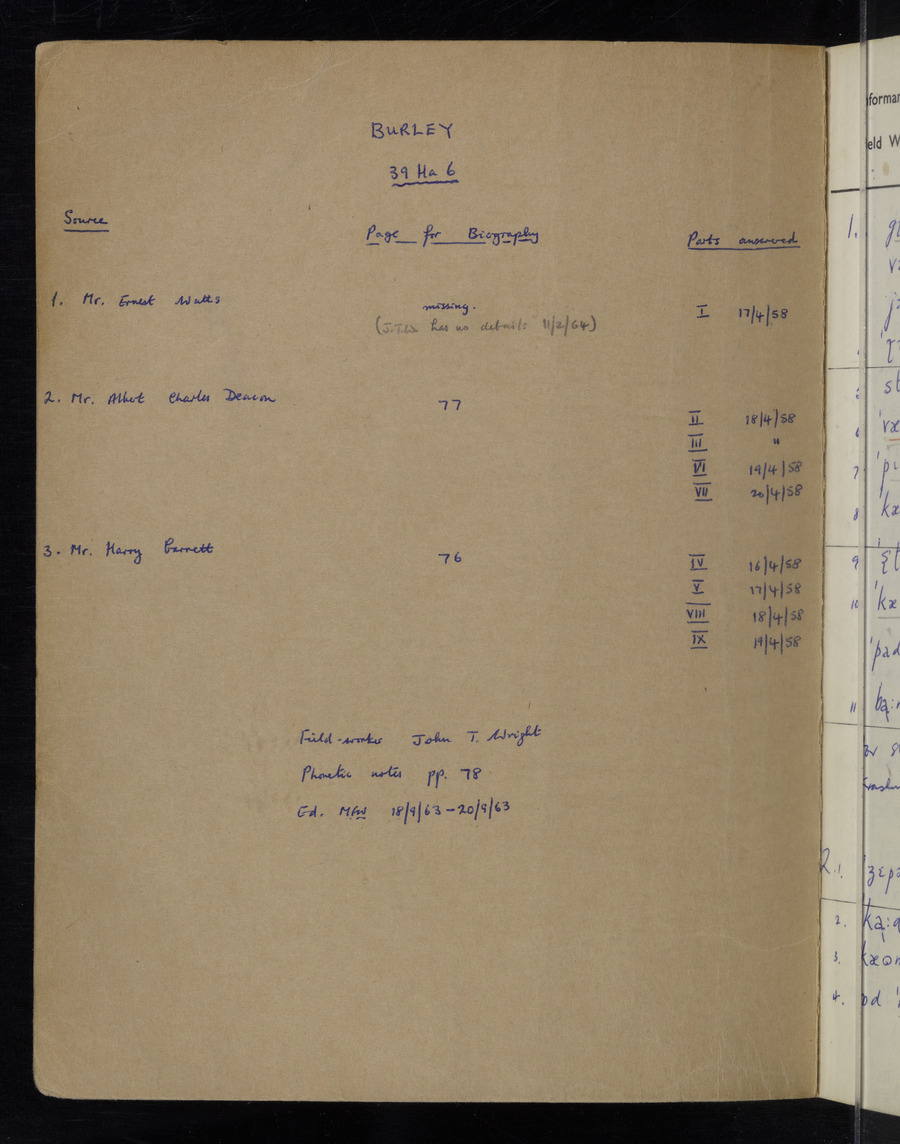 BURLEY
39 Ha 6
Source Page for Biography Parts answered
1. Mr. Ernest Watts missing. I 17/4/58
(J.T.W. has no details 11/2/64)
2. Mr. Albert Charles Deacon 77 II 18/4/58
III "
VI 19/4/58
VII 20/4/58
3. Mr. Harry Barrett 76 IV 16/4/58
V 17/4/58
VIII 18/4/58
IX 19/4/58
Field-worker John T. Wright
Phonetic notes pp. 78
Ed. MFW 18/9/63 - 20/9/63
1.
6
7
8
9
10
11
2. 1.
2.
3.
4.